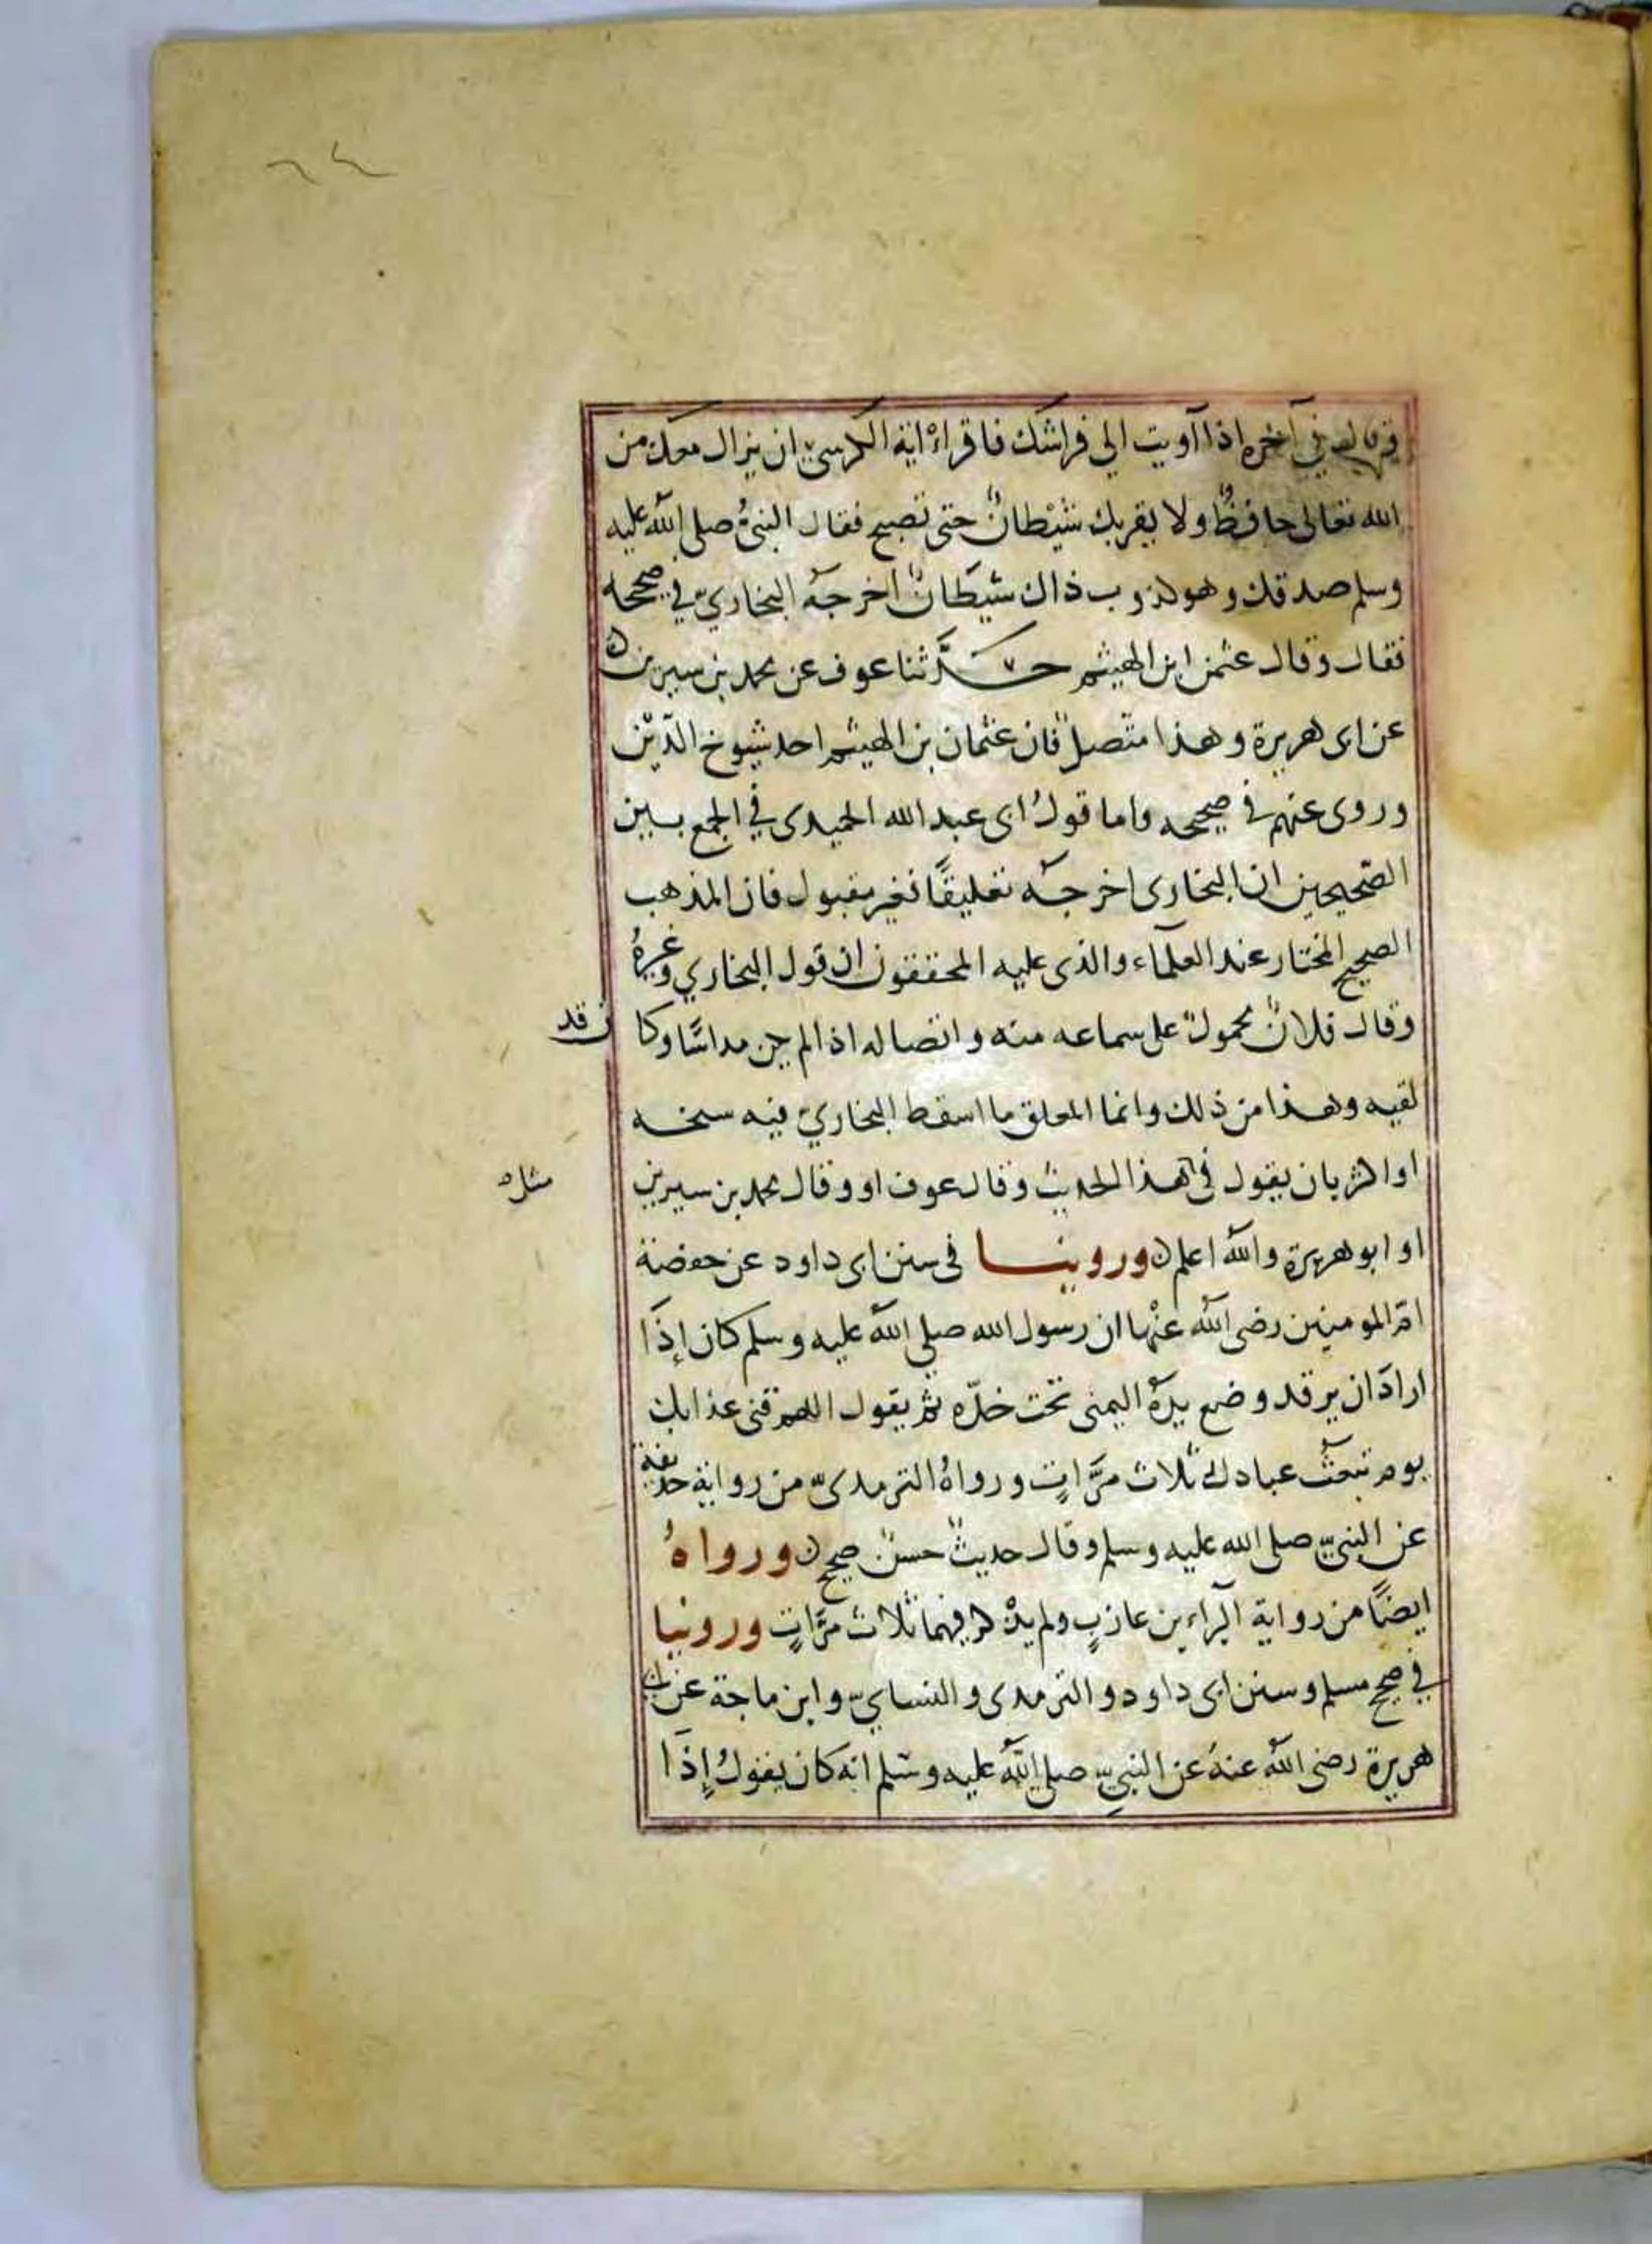 وقال في آخره اذا آويت الى فراشك فاقراء اية الكرسي ان يزال معك من
الله تعالى حافظ ولا يقربك شيطان حتى تصبح فقال النبي صلى الله عليه
وسلم صدقك وهو كذوب ذاك شيطان اخرجه البخاري في صحيحه
فقال وقال عثمن ابن الهيثم حدثنا عوف عن محمد بن سيرين
عن ابى هريرة وهذا متصل فان عثمان بن الهيثم احد شيوخ الذين
وروى عنهم فى صحيحه واما قول ابى عبد الله الحميدى في الجمع بين
الصحيحين ان البخارى اخرجه تعليقًا فغير مقبول فان المذهب
الصحيح المختار عند العلماء والذى عليه المحققون ان قول البخاري وغيره
وقال فلان محمول على سماعه منه واتصاله اذا لم يكن مدلسًا وكا ن قد
لقيه وهذا من ذلك وانما المعلق ما اسقط البخاري فيه سخه
او اكثر بان يقول فى مثل هذا الحديث وقال عوف او وقال محمد بن سيرين
او ابو هريرة والله اعلم وروينا فى سنن ابى داود عن حفصة
ام المومنين رضى الله عنها ان رسول الله صلى الله عليه وسلم كان إذا
اراد ان يرقد وضع يده اليمنى تحت خدّه ثم يقول اللهم قنى عذابك
يوم تبعث عبادك ثلاث مرّاتٍ ورواه الترمدىّ من رواية حذيفة
عن النبىّ صلى الله عليه وسلم وقال حديث حسن صحيح ورواهُ
ايضًا من رواية البراء بن عازبٍ ولم يذكر فيهما ثلاث مرّاتٍ وروينا
في صحيح مسلم وسنن ابى داود والترمدى والنسايّ وابن ماجة عن ابى
هريرة رضى الله عنه عن النبيّ صلى الله عليه وسلم انه كان يقول إذا